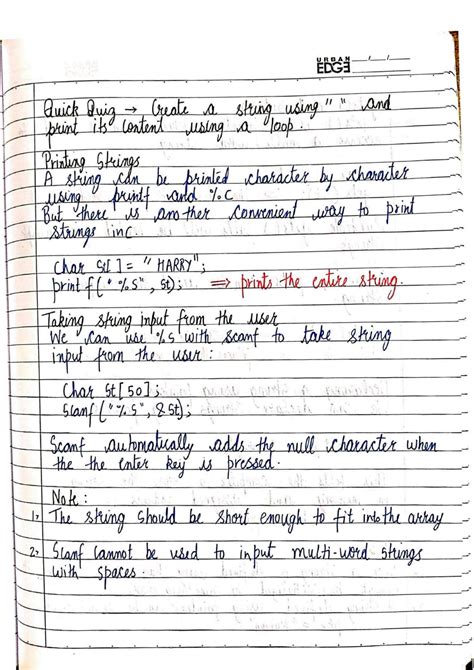 URBAN
EDGE
Quick Quiz → Create a string using " " and
print its content using a loop.
Printing Strings
A string can be printed character by character
using printf and %c
But there is another convenient way to print
strings in c.
Char St[ ] = " HARRY";
print f(" %s", st); ⇒ prints the entire string.
Taking string input from the user
We can use %s with scanf to take string
input from the user:
Char St[50];
Scanf ("%s", &St);
Scanf automatically adds the null character when
the the enter key is pressed.
Note:
1> The string should be short enough to fit into the array
2> Scanf cannot be used to input multi-word strings
with spaces.